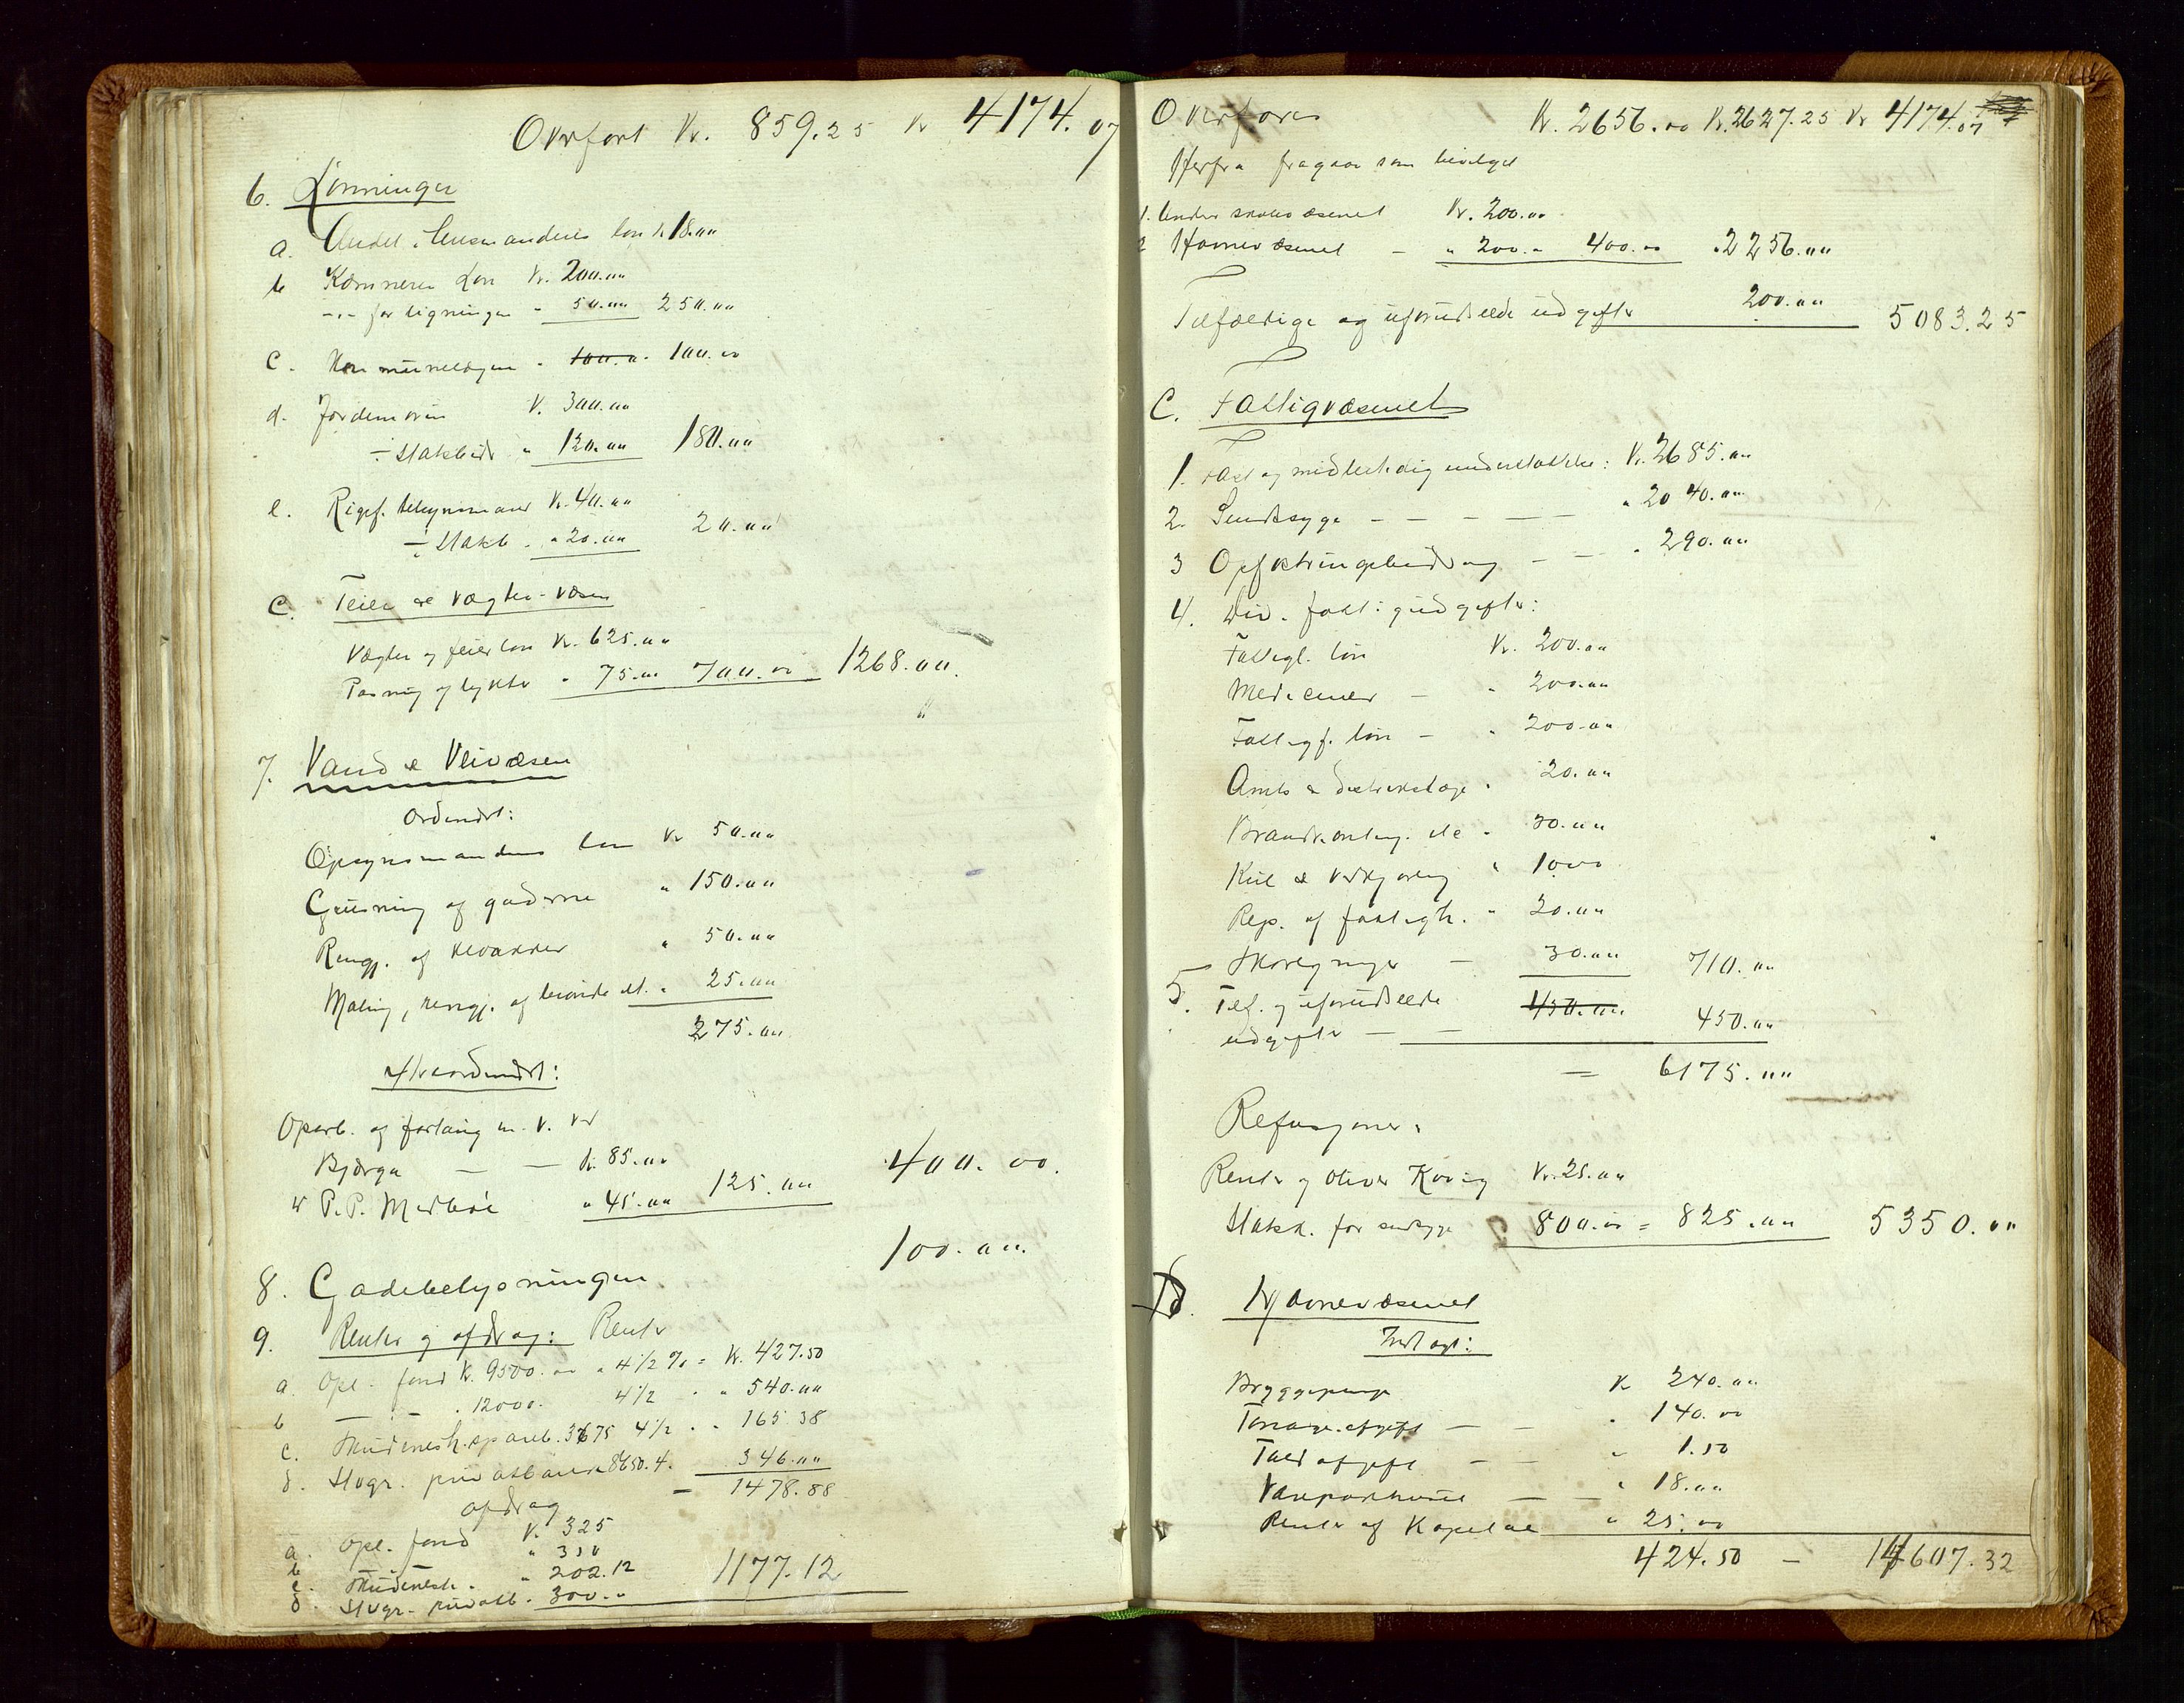 Overført Kr. 859.25 Kr 4174.07
6. Lønninger
a. Andel i lensmandens løn k 18.00
b Kæmneren Løn Kr. 200.00
-"- for ligningen " 50.00 250.00
c. Kommunelægen " 100.00 100.00
d. Jordemoren K. 300.00
÷ Statsbidr " 120.00 180.00
e. Rigsf. tilsynsmand Kr. 40.00
÷ Statsb. " 20.00 20.00
C. Feier & Vægter-væsen
Vægter og feierløn Kr. 625.00
Pasning af lykter " 75.00 700.00 1268.00
7. Vand & Veivæsen
Ordinært:
Opsynsmandens løn Kr 50.00
Grusning af gaderne " 150.00
Rengj. af kloakker " 50.00
Maling, rengj. af brønde et. " 25.00
275.00
Extraordinært:
Oparb. af fortaug m. V. ved
Bjerga — — Kr. 85.00
" P.P. Medbøe " 45.00 125.00 400.00
100.00
8. Gadebelysningen
9. Renter og afdrag: Renter
a. Opl. fond Kr. 9500.00 a 4 1/2 % = Kr. 427.50
b — " — " 12000. 4 1/2 " " 540.00
c. Skudenesh. spareb. 3675 4 1/2 " " 165 38
d. Stvgr. privatbank 8650. 4. 346.00
afdrag — 1478.88
a. Opl. fond K. 325
b " 350
c. Skudenesh. " 202.12 1177.12
d. Stvgr. privatb. " 300."
Overføres Kr. 2656.00 Kr. 2627.25 Kr 4174.07
Herfra fragaar som bevilget
1. Under skolevæsenet Kr. 200.00
2 Havnevæsenet — " 200." 400.00 " 2256.00
Tilfældige og uforudseede udgifter 200.00 5083.25
C. Fattigvæsenet
1. Fast og midlertidig understøttelse: Kr. 2685.00
2. Sindssyge — — — — — " 2040.00
3 Opfostringsbidrag — — " 290.00
4. Div. fattigudgifter:
Fattigl. løn Kr. 200.00
Mediciner — " 200.00
Fattigf. løn — " 200.00
Amts & distriktslæge " 20.00
Brandkonting. etc " 30.00
Kul & vedkjøring " 10.00
Rep. af fattigh. " 20.00
Skoregninger — 30.00 710.00
5. Tilf. og uforudseede 450.00 450.00
udgifter — —
= 6175.00
Refusjoner:
Renter af Oliver Koring Kr. 25.00
Statsk. for sindsyge 800.00 = 825.00 5350.00
D. Havnevæsenet
Indtægt:
Bryggepenge K 240.00
Tonage.afgift — — " 140.00
Told afgift — — " 1.50
Vareparkhuse — — " 18.00
Renter af Kapital " 25.00
424.50 — 14607.32